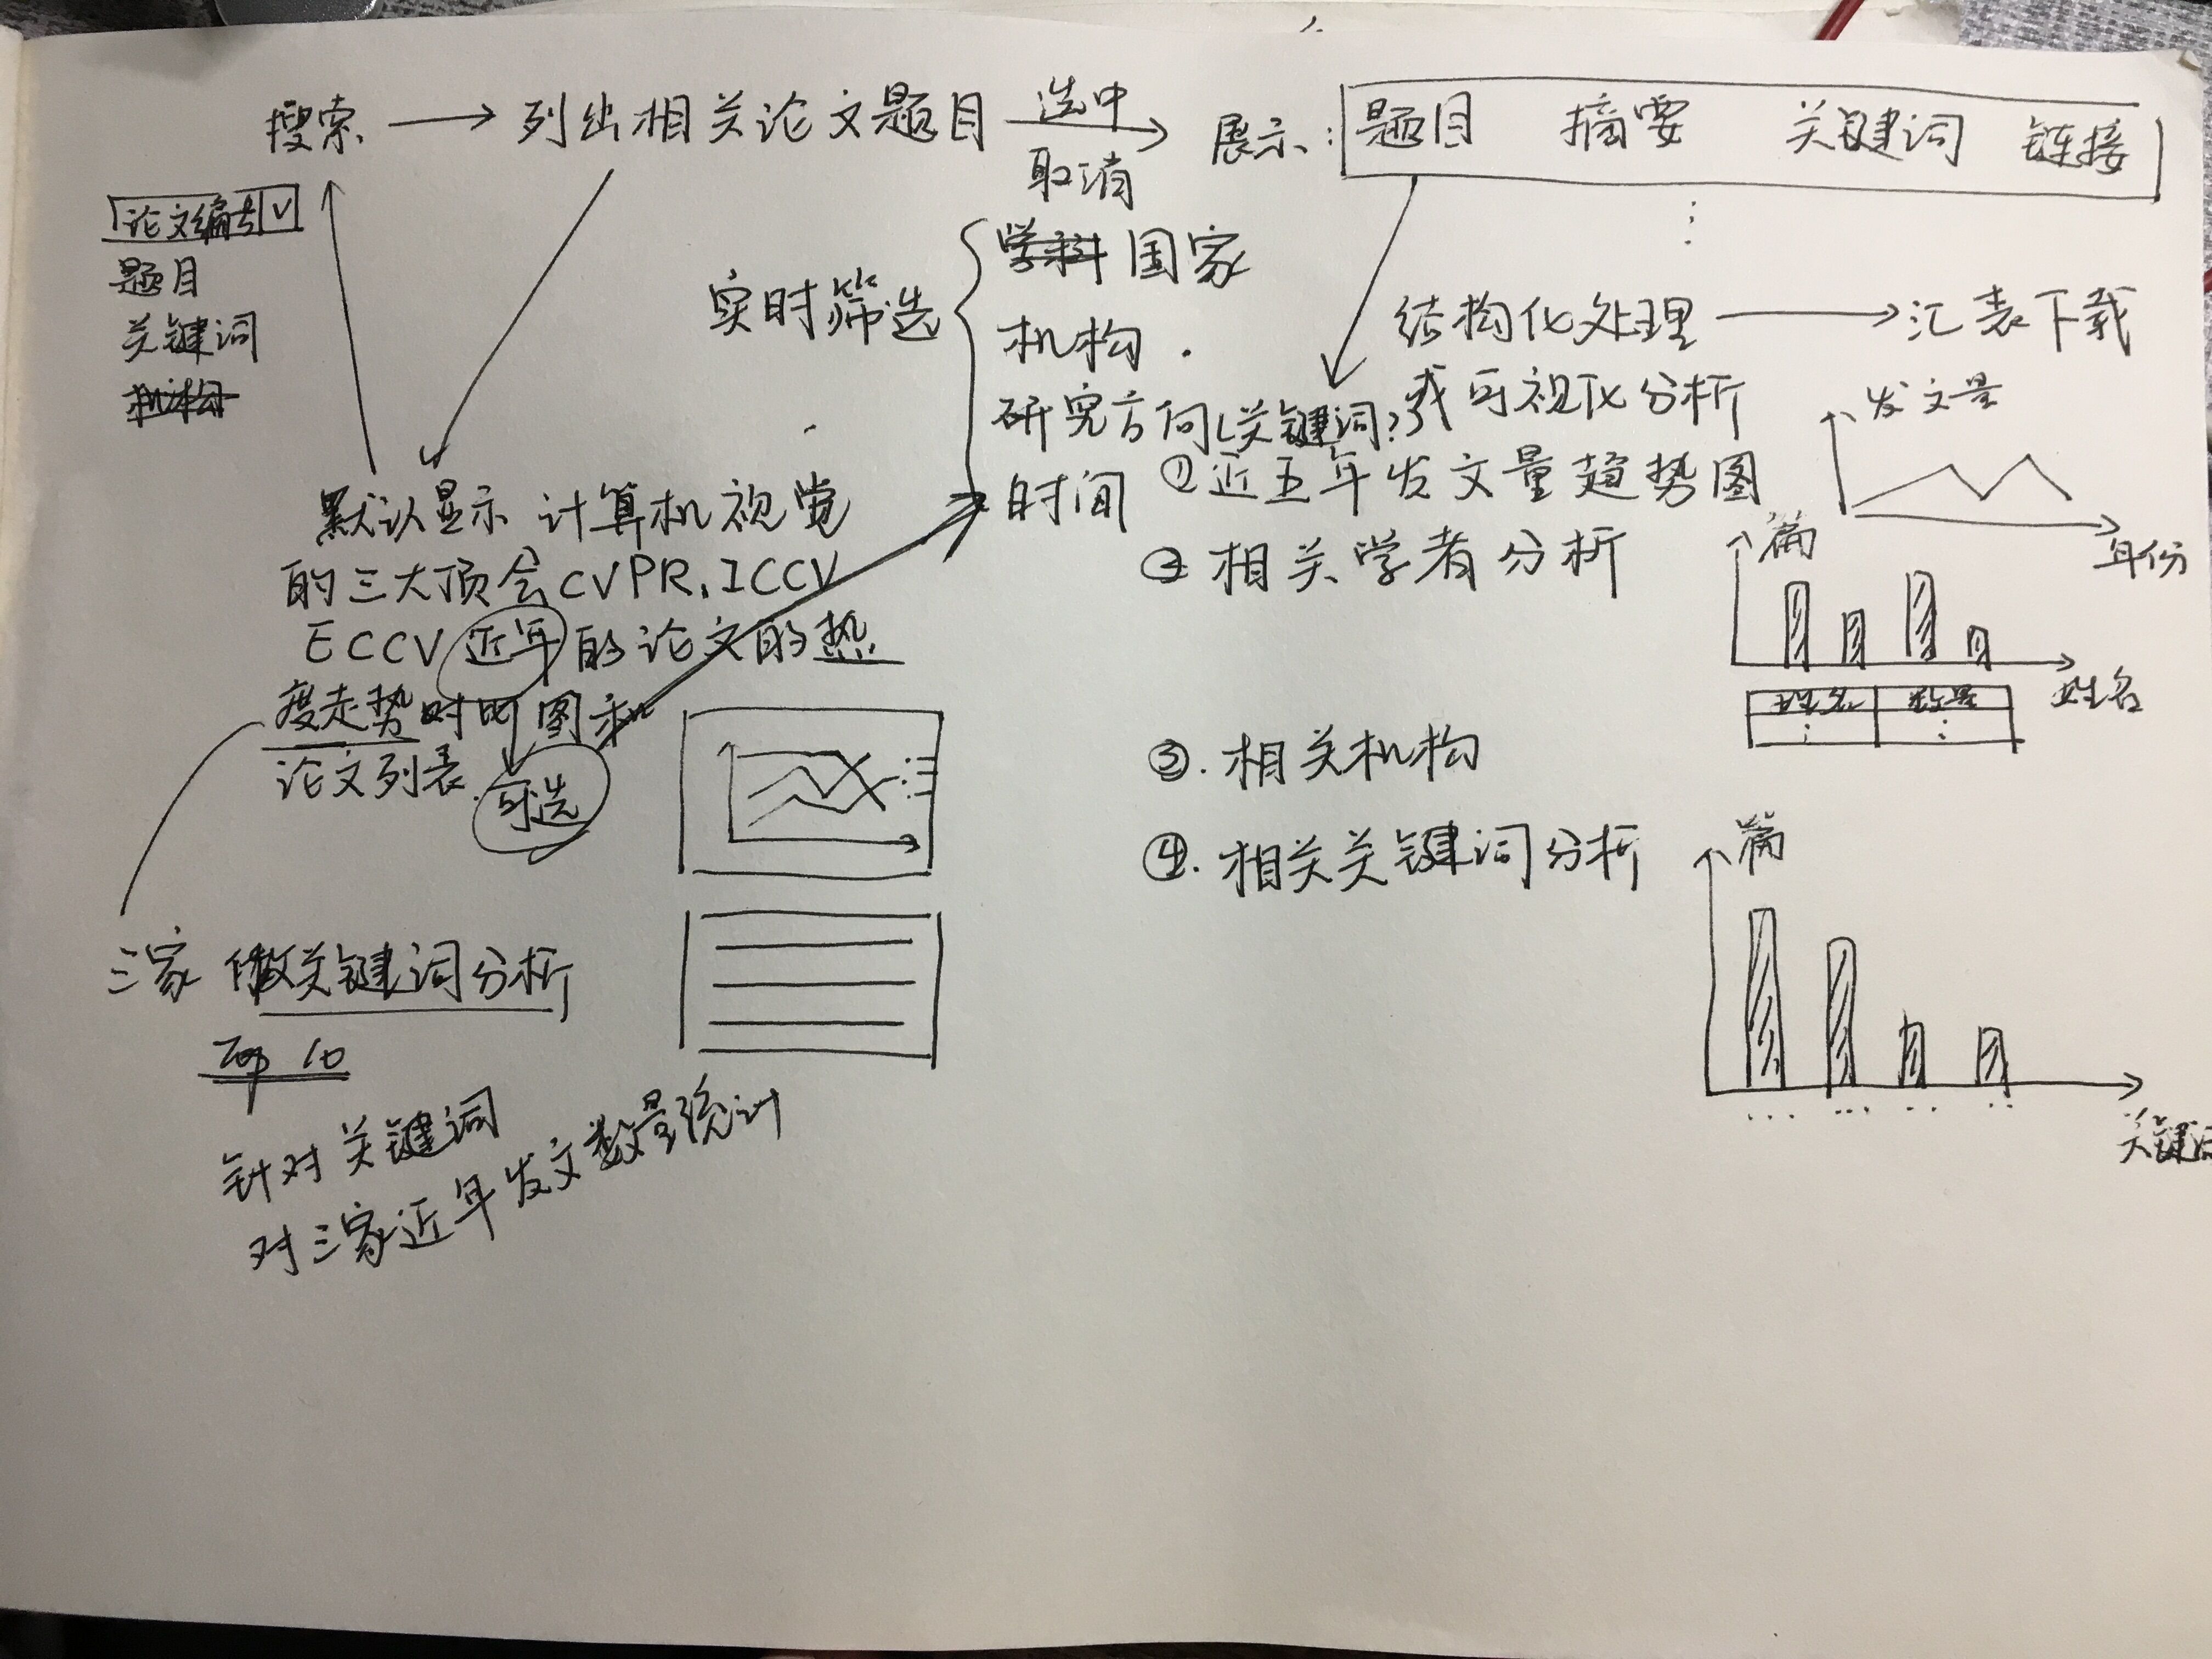 搜索
列出相关论文题目
选中
取消
展示:
题目 摘要 关键词 链接
论文编号
题目
关键词
机构
实时筛选
学科 国家
机构
研究方向(关键词?)
时间
结构化处理
汇表下载
或可视化分析
①近五年发文量趋势图
发文量
年份
②相关学者分析
篇
姓名
姓名 数量
③.相关机构
④.相关关键词分析
篇
关键词
默认显示 计算机视觉
的三大顶会CVPR.ICCV
ECCV 近年的论文的热
度走势 图和
论文列表.
可选
三家做关键词分析
Top 10
针对关键词
对三家近年发文数量统计